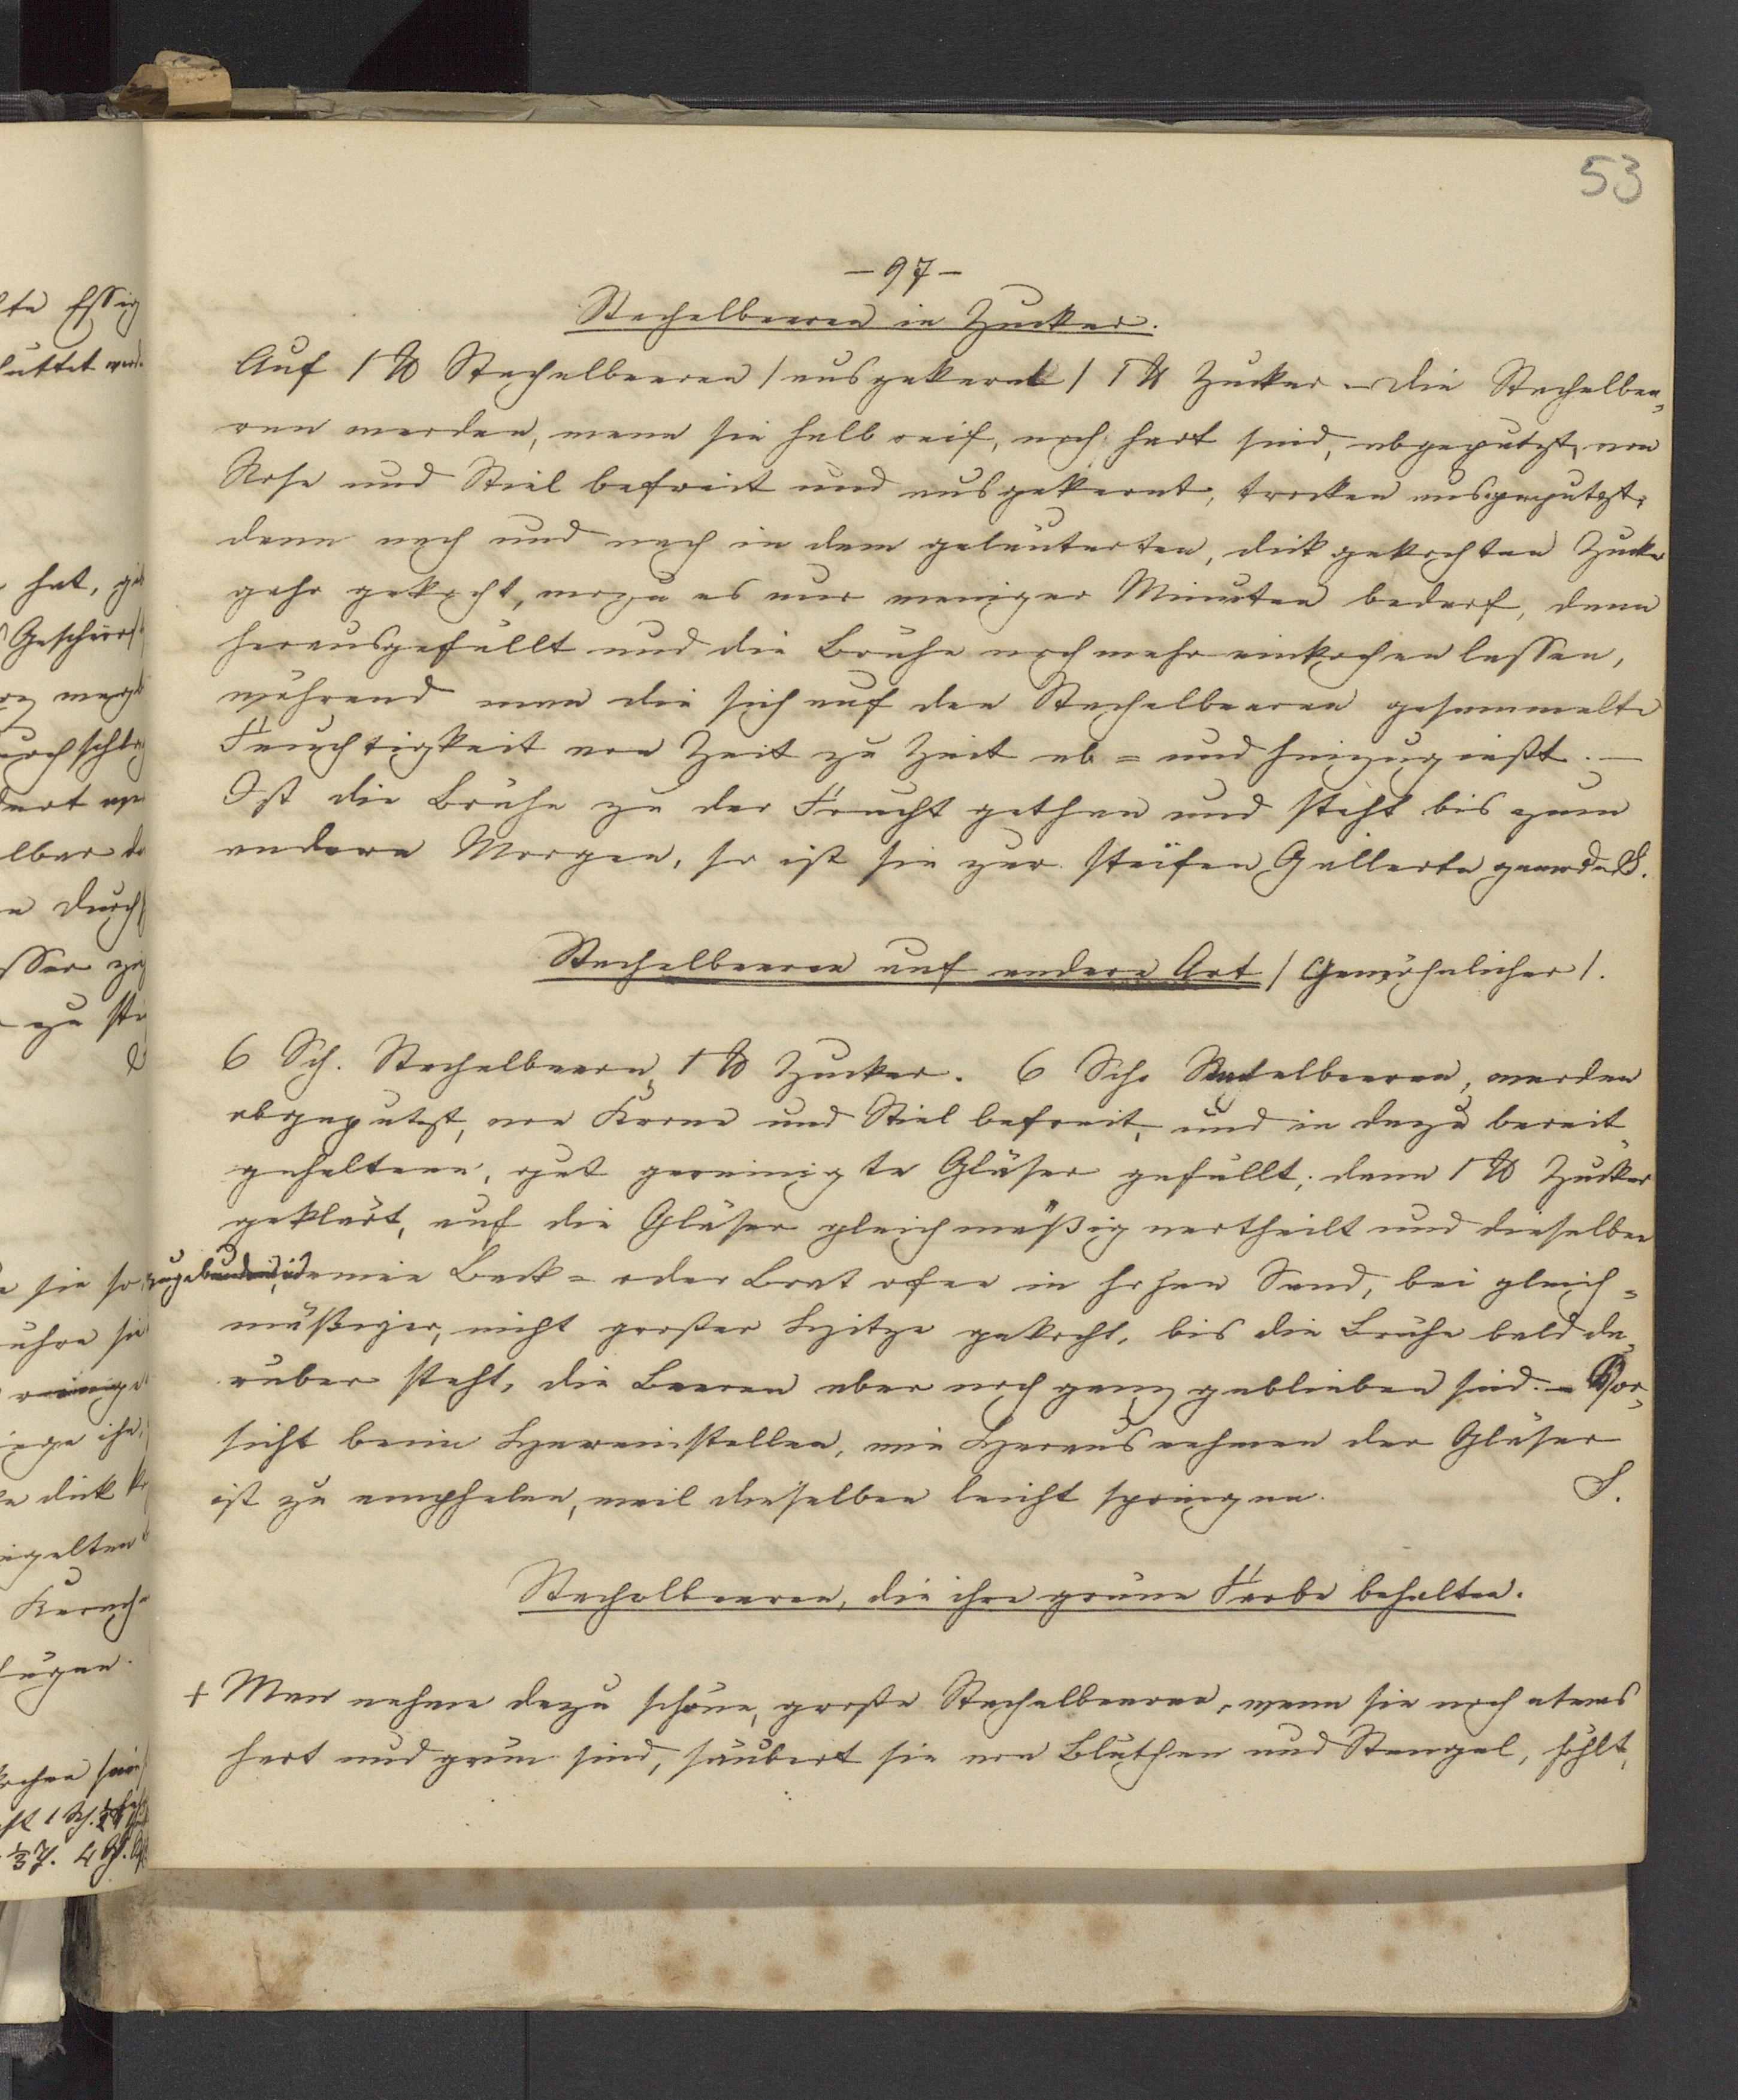 53
— 97 —
Stachelbeeren in Zucker.
Auf 1 ℔ Stachelbeeren / ausgekernt / 1 ℔ Zucker – die Stachelbee=
ren werden, wenn sie halb reif, noch hart sind, abgeputzt, von
Nose und Stiel befreit und ausgekernt, trocken ausgeputzt,
dann nach und nach in dem geläuterten, dick gekochten Zucker
gahr gekocht, wozu es nur weniger Minuten bedarf, dann
herausgefüllt und die Brühe noch mehr einkochen lassen,
während man die sich auf den Stachelbeeren gesammelte
Feuchtigkeit von Zeit zu Zeit ab= und hinzugießt. —
Ist die Brühe zu der Frucht gethan und steht bis zum
andern Morgen, so ist sie zur steifen Gallerte geworden.
Stachelbeeren auf andere Art / Gewöhnlicher /.
6 Sch. Stachelbeern, 1 ℔ Zucker. 6 Sch. Stachelbeeren, werden
abgeputzt, von Kerne und Stiel befreit, und in dazu bereit
gehaltene, gut gereinigte Gläser gefüllt; dann 1 ℔ Zucker
geklärt, auf die Gläser gleichmäßig vertheilt und dieselben
zugebunden, in Back= oder Bratofen in hohen Sand, bei gleich=
mäßiger, nicht großer Hitze gekocht, bis die Brühe bald da=
rüber steht, die Beeren aber noch ganz geblieben sind. – Vor=
sicht beim Hereinstellen, wie Herausnehmen der Gläser
ist zu empfehlen, weil dieselben leicht springen. S.
Stachelbeeren, die ihre grüne Farbe behalten.
+ Man nehme dazu schöne, große Stachelbeeren, wenn sie noch etwas
hart und grün sind, säubert sie von Blüthen und Stengel, höhlt,